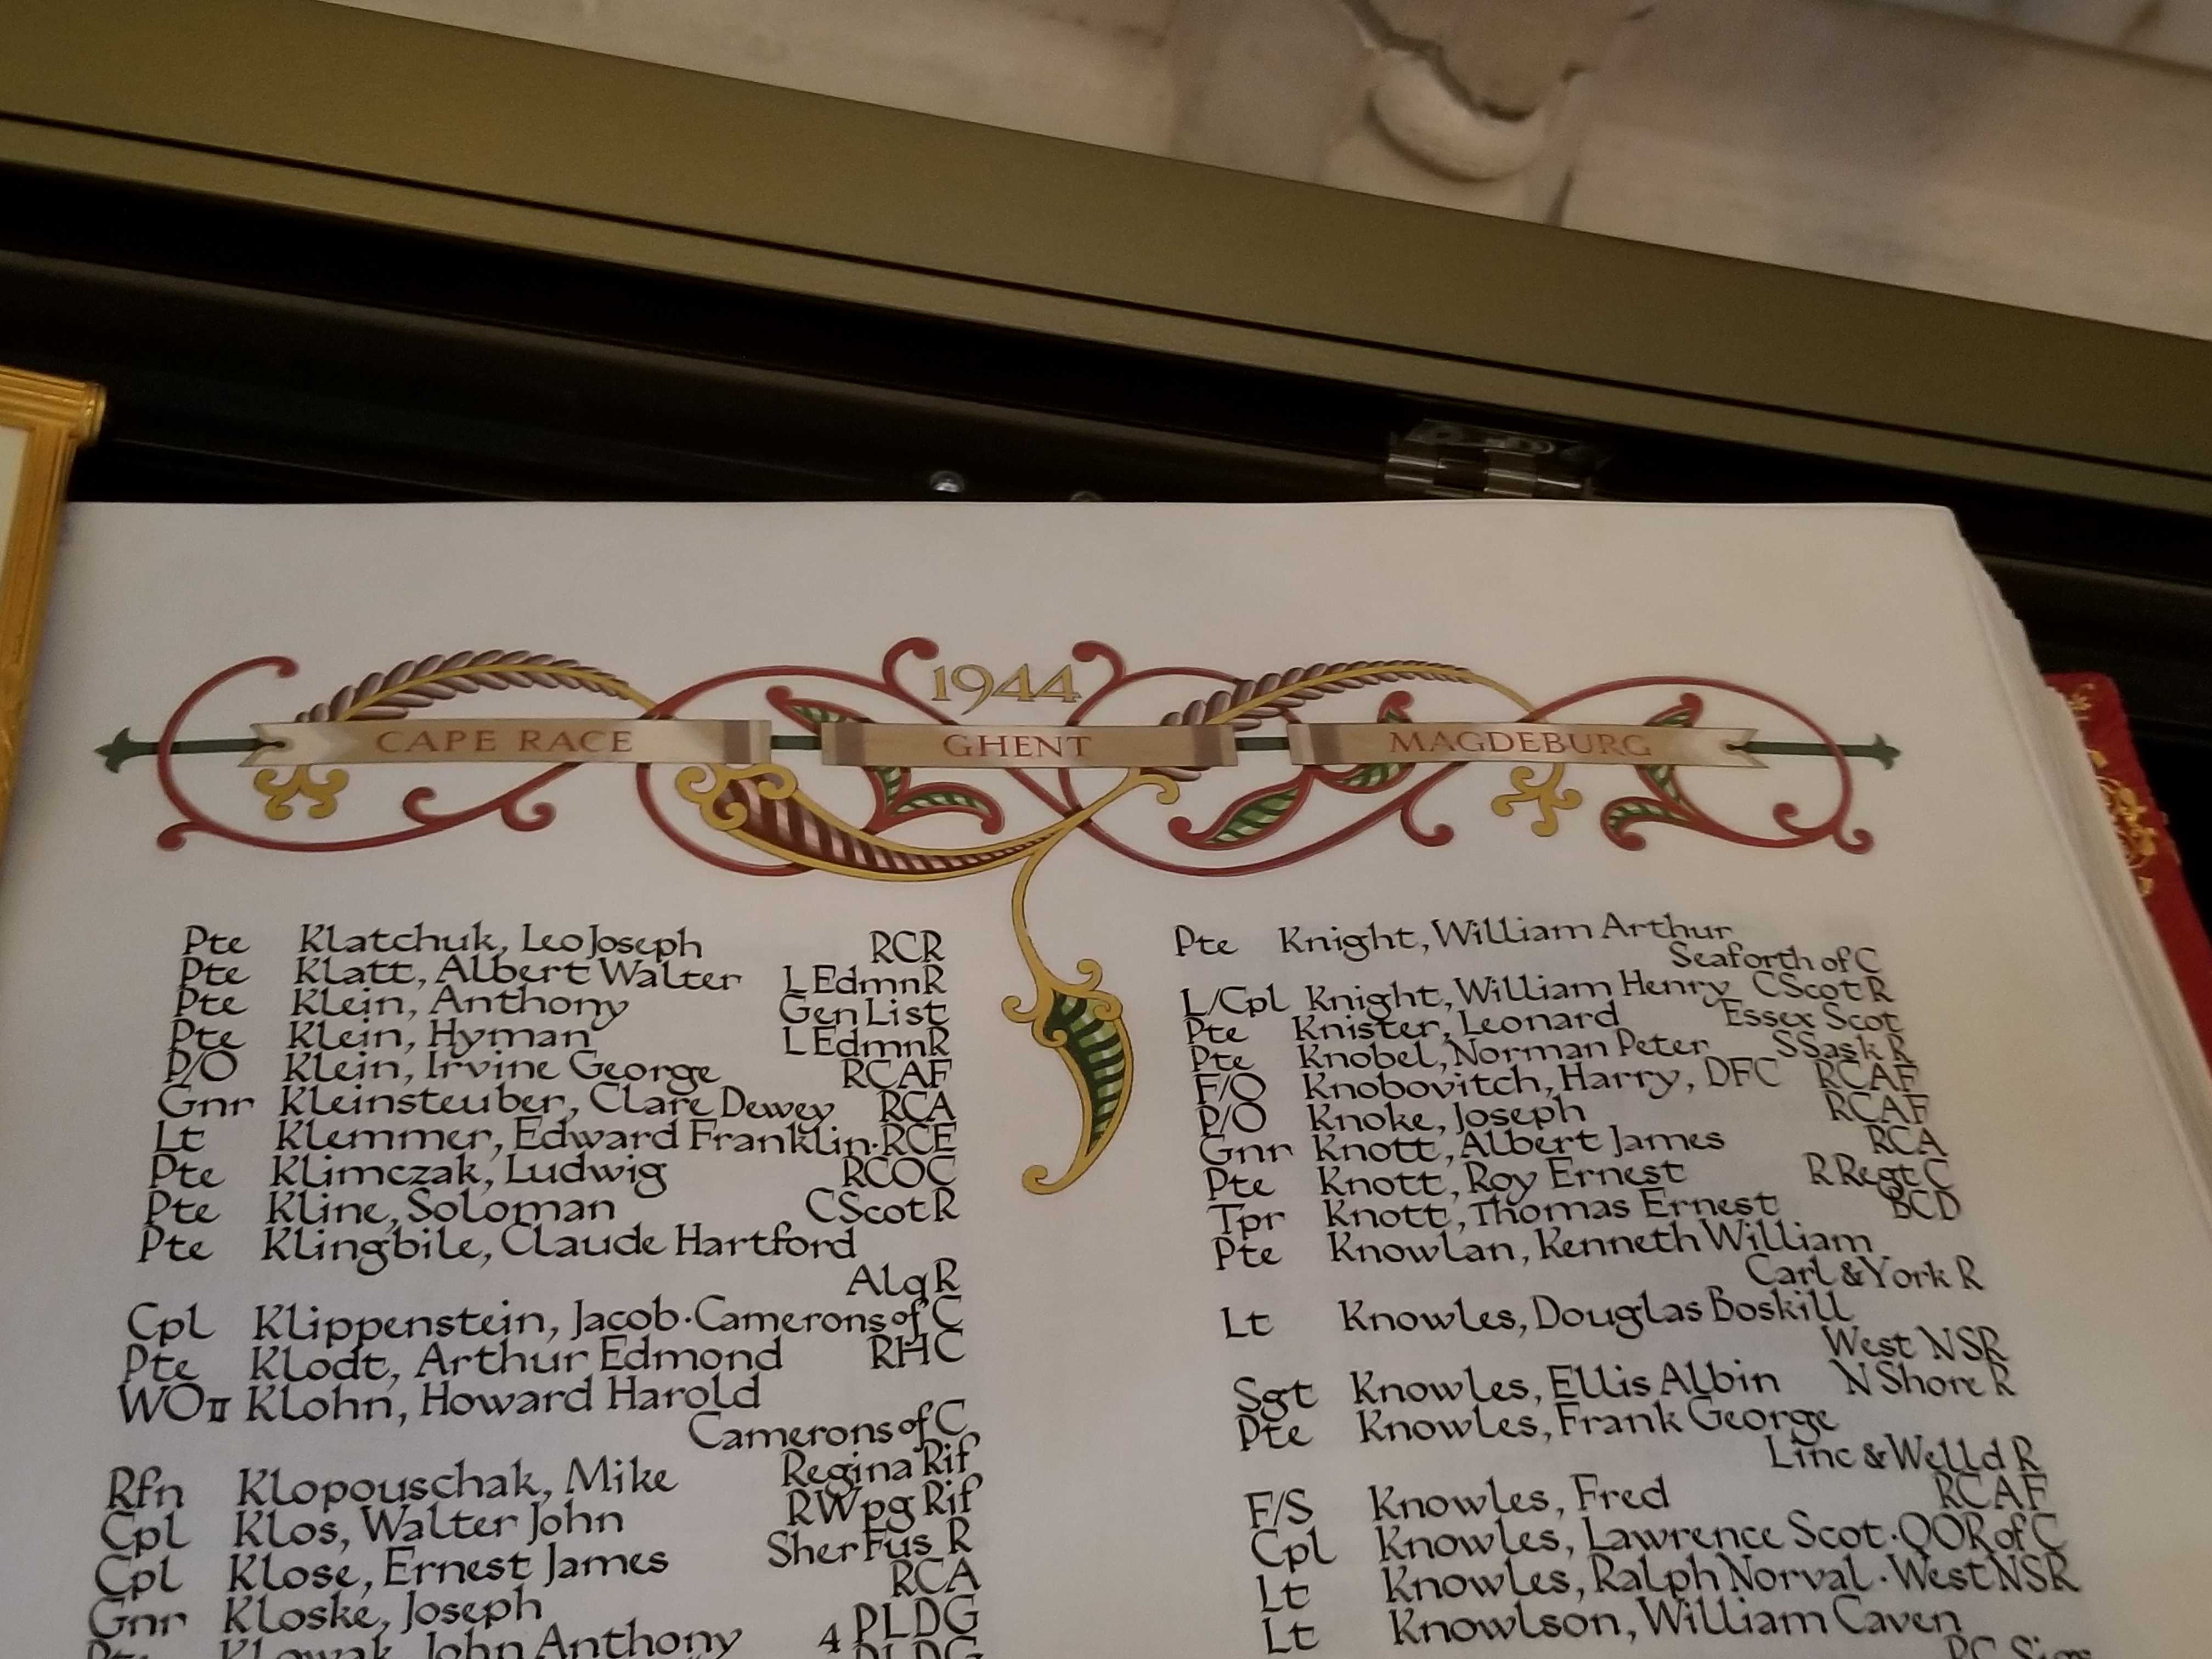 1944
CAPE RACE GHENT MAGDEBURG
Pte Klatchuk, Leo Joseph RCR
Pte Klatt, Albert Walter L EdmnR
Pte Klein, Anthony Gen List
Pte Klein, Hyman L EdmnR
P/O Klein, Irvine George RCAF
Gnr Kleinsteuber, Clare Dewey RCA
Lt Klemmer, Edward Franklin·RCE
Pte Klimczak, Ludwig RCOC
Pte Kline, Soloman CScotR
Pte Klingbile, Claude Hartford
Alq R
Cpl Klippenstein, Jacob·Camerons of C
Pte Klodt, Arthur Edmond RHC
WOII Klohn, Howard Harold
Camerons of C
Rfn Klopouschak, Mike Regina Rif
Cpl Klos, Walter John RWpg Rif
Cpl Klose, Ernest James Sher Fus R
Gnr Kloske, Joseph RCA
John Anthony 4 PLDG
Pte Knight, William Arthur
Seaforth of C
L/Cpl Knight, William Henry CScotR
Pte Knister, Leonard Essex Scot
Pte Knobel, Norman Peter SSask R
F/O Knobovitch, Harry, DFC RCAF
P/O Knoke, Joseph RCAF
Gnr Knott, Albert James RCA
Pte Knott, Roy Ernest R Regt C
Tpr Knott, Thomas Ernest BCD
Pte Knowlan, Kenneth William
Carl & York R
Lt Knowles, Douglas Boskill
West NSR
Sgt Knowles, Ellis Albin N Shore R
Pte Knowles, Frank George
Linc & Welld R
F/S Knowles, Fred RCAF
Cpl Knowles, Lawrence Scot·QOR of C
Lt Knowles, Ralph Norval·West NSR
Lt Knowlson, William Caven